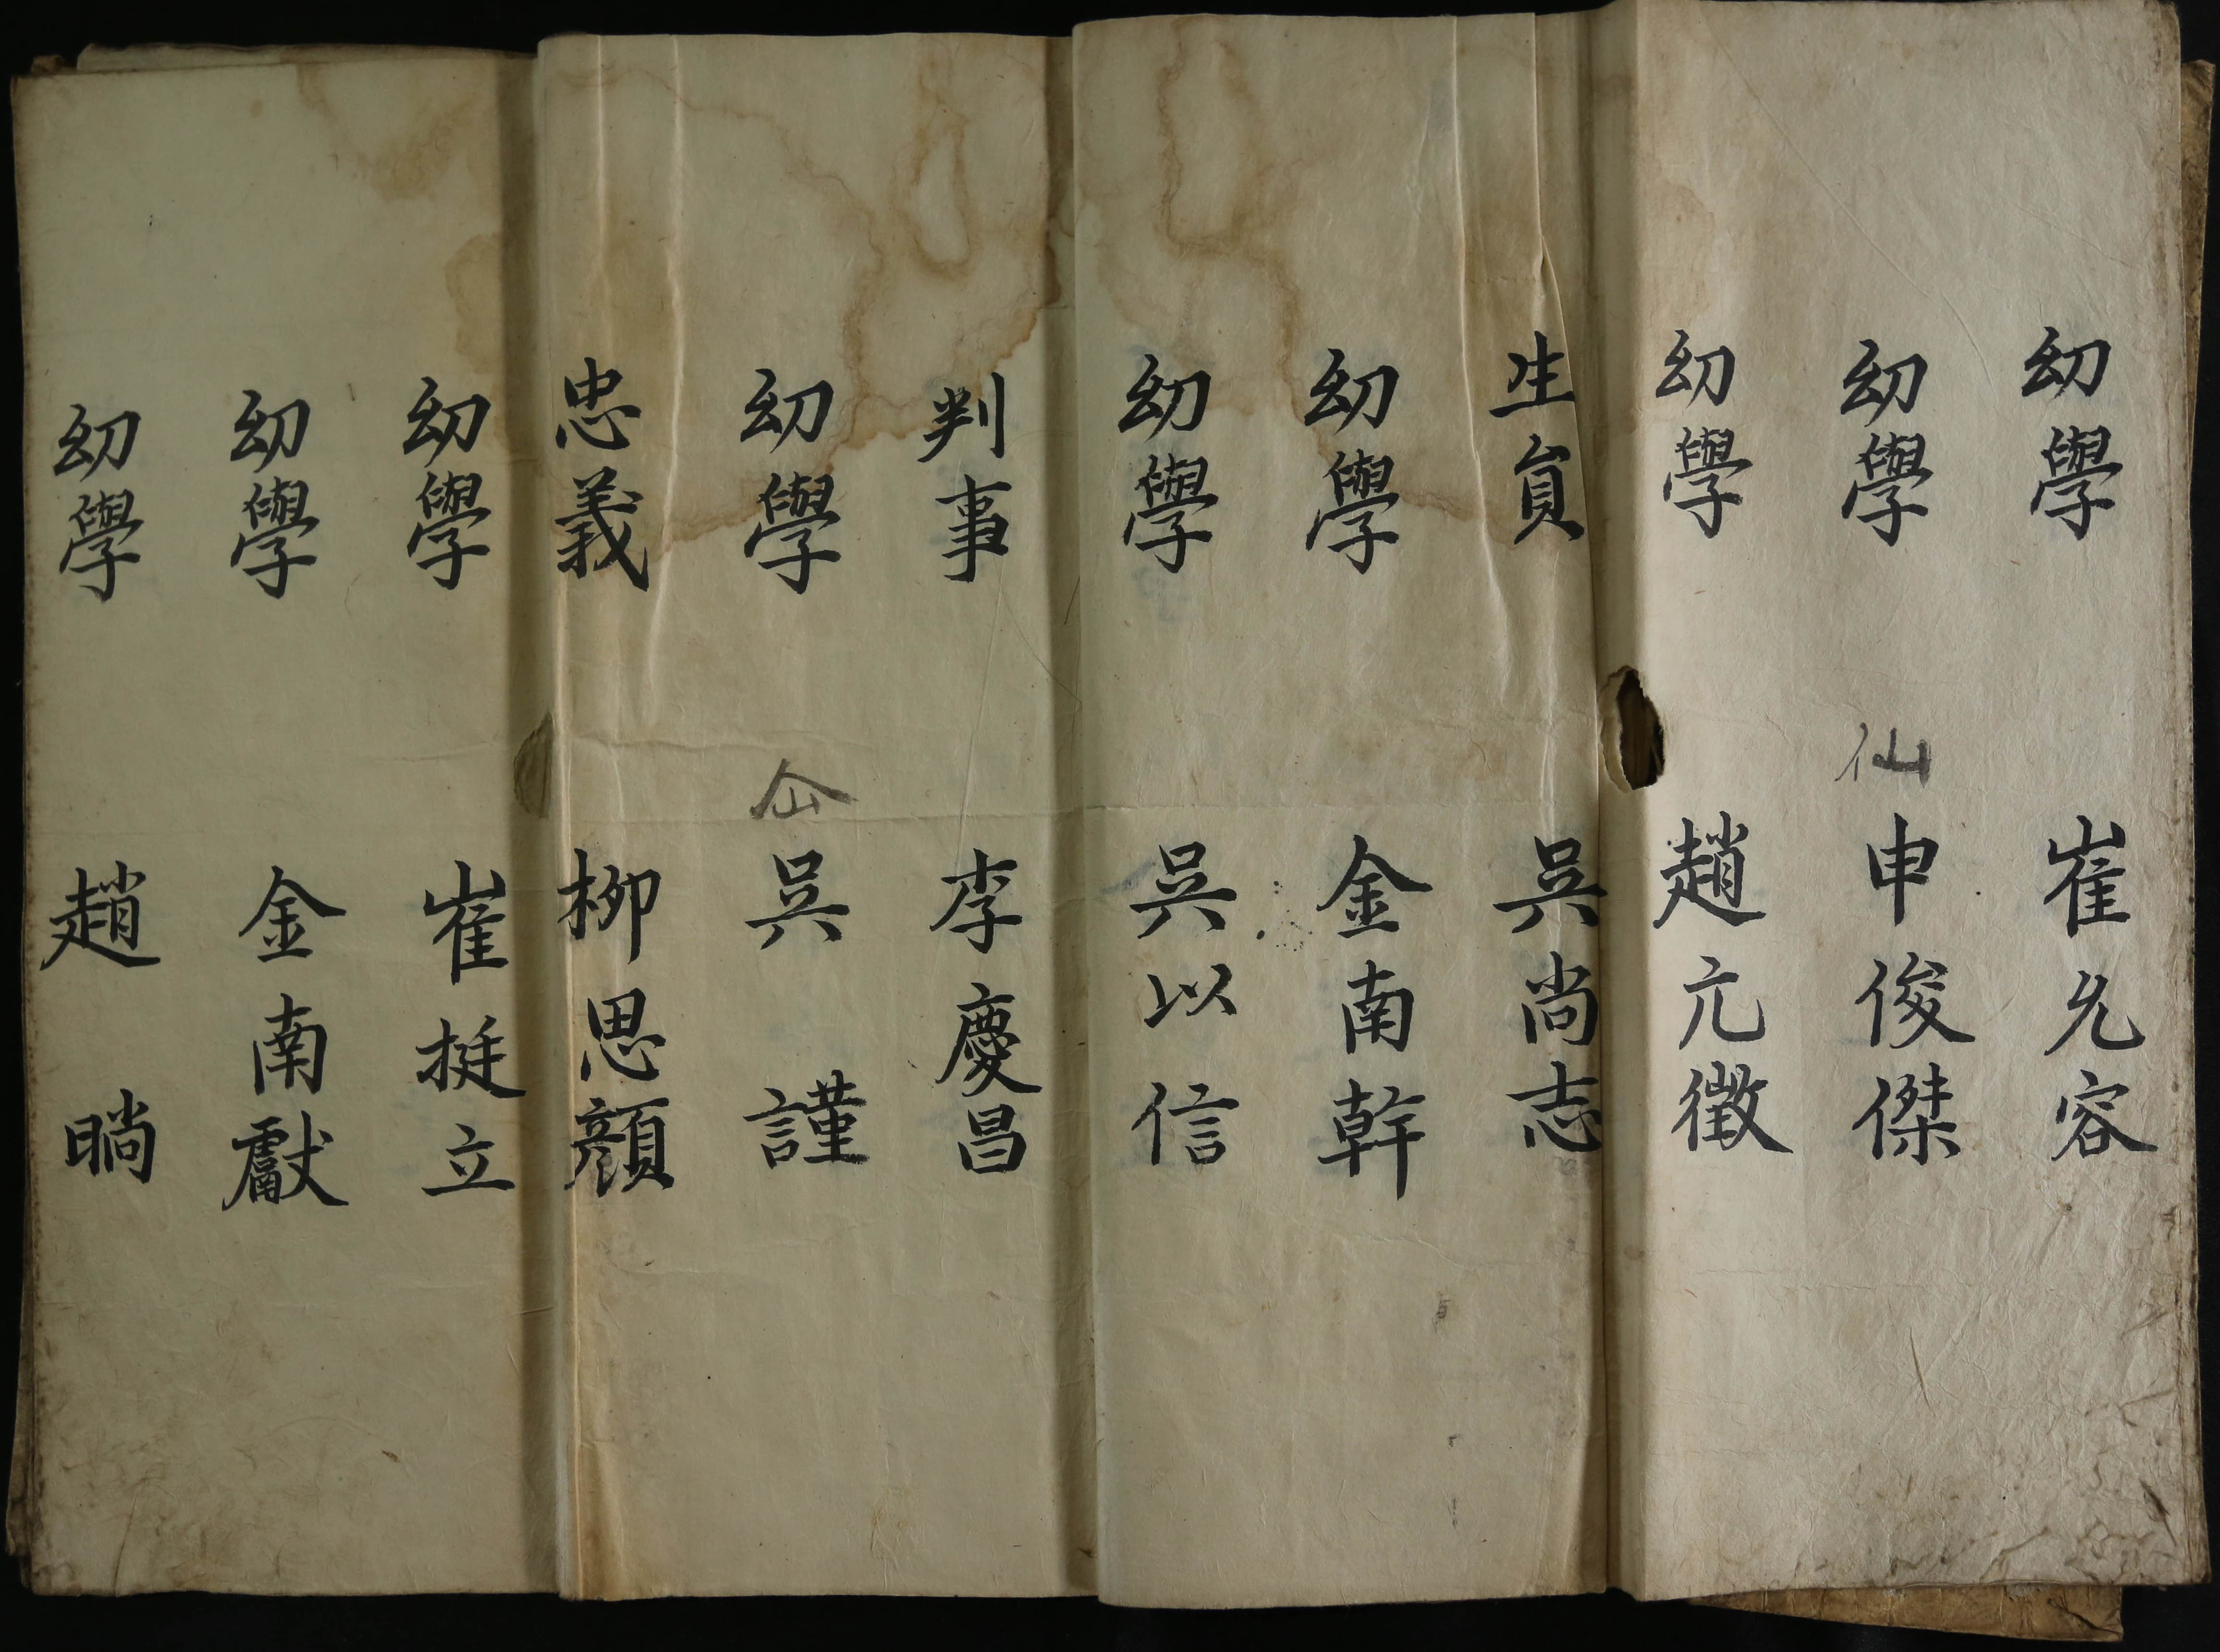 幼學 崔允容
幼學 仙 申俊傑
幼學 趙亢徵
生員 吳尚志
幼學 金南幹
幼學 吳以信
判事 李慶昌
幼學 仚 吳謹
忠義 柳思顔
幼學 崔挺立
幼學 金南獻
幼學 趙晌